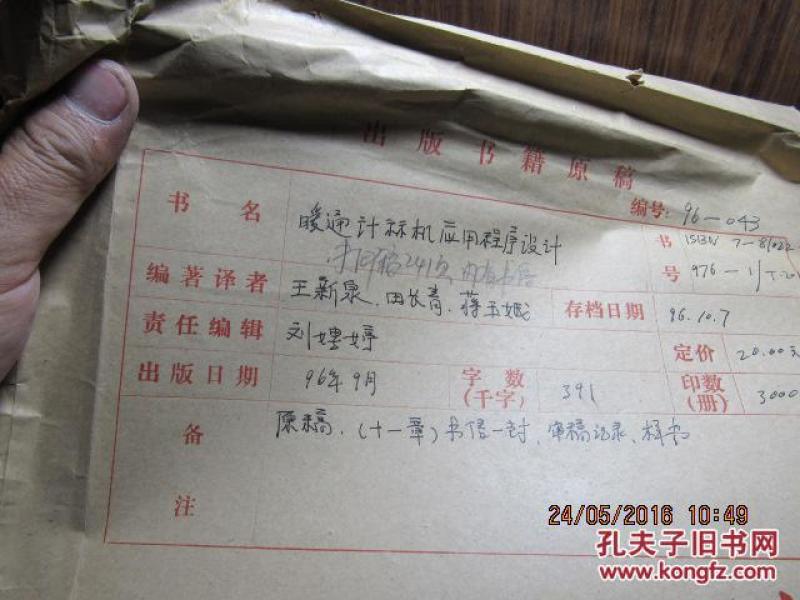 出版书籍原稿
编号: 96-043
书名 暖通计祘机应用程序设计
书号 ISBN 7-81022
打印稿241页 内有书信
976-1/T.20
编著译者 王新泉、田长青、蒋玉娥
存档日期 96.10.7
责任编辑 刘娉婷
定价 20.00元
出版日期 96年9月 字数(千字) 391 印数(册) 3000
备注 原稿.(十一章)书信一封、审稿记录、样书
24/05/2016 10:49
孔夫子旧书网
www.kongfz.com